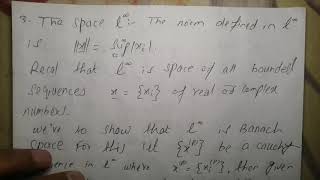 3- The space l^∞ :- The norm defined in l^∞
is: ||x|| = Sup |xi|
Recal that l^∞ is space of all bounded
sequences x = {xi} of real or complex
numbers.
we're to show that l^∞ is Banach
space for this let {x^(p)} be a cauchy
in l^∞ where x^(p) = {xi^(p)}, then given